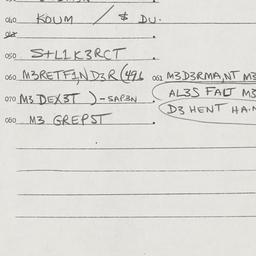 040 KOUM / $ DU.
050 S+L1K3RCT
060 M3RETF1,ND3R (49L 061 M3D3RMA,NT M3
AL3S FALT M3
070 M3 DEX3T ) - SAP3N
D3 HENT HA.N
080 M3 GREPST